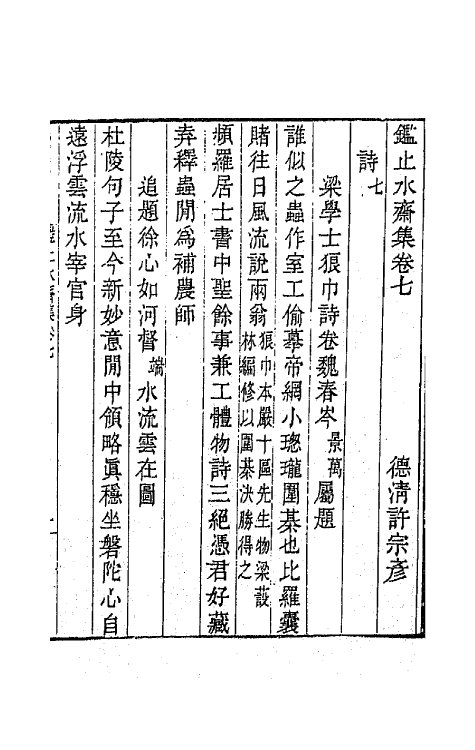 鑑止水齋集卷七
德清許宗彥
詩七
梁學士猿巾詩卷魏春岑景萬屬題
誰似之蟲作室工偷摹帝網小璁瓏圍棊也比羅囊
賭往日風流說兩翁猿巾本嚴十區先生物梁蔎林編修以圍棊決勝得之
頻羅居士書中聖餘事兼工體物詩三絕憑君好藏
弆釋蟲閒爲補農師
追題徐心如河督端水流雲在圖
杜陵句子至今新妙意閒中領略眞穩坐磐陀心自
遠浮雲流水宰官身